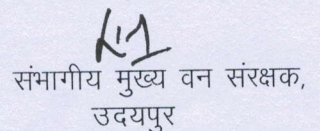 संभागीय मुख्य वन संरक्षक,
उदयपुर